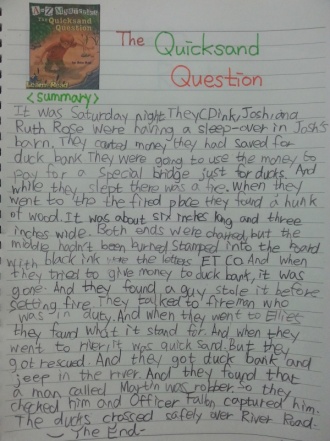 A to Z Mysteries
The Quicksand
Question
The Quicksand
Question
<summary>
It was Saturday night They(Dink, Josh, and
Ruth Rose were having a sleep-over in Josh's
barn. They carted money they had saved for
duck bank They were going to use the money to
pay for a special bridge just for ducks. And
while they slept there was a fire. When they
went to the fired place they found a hunk
of wood. It was about six inches long and three
inches wide. Both ends were charred, but the
middle hadn't been burned Stamped into the board
with black ink were the letters ET CO. And when
they tried to give money to duck bank, it was
gone. And they found a guy stole it before
setting fire. They talked to fireman who
was in duty. And when they went to Ellie's
they found what it stand for. And when they
went to river it was quick sand. But they
got rescued. And they got duck bank and
jeep in the river. And they found that
a man called Martin was robber. So they
checked him and Officer Fallon captured him.
The ducks crossed safely over River Road.
The End-